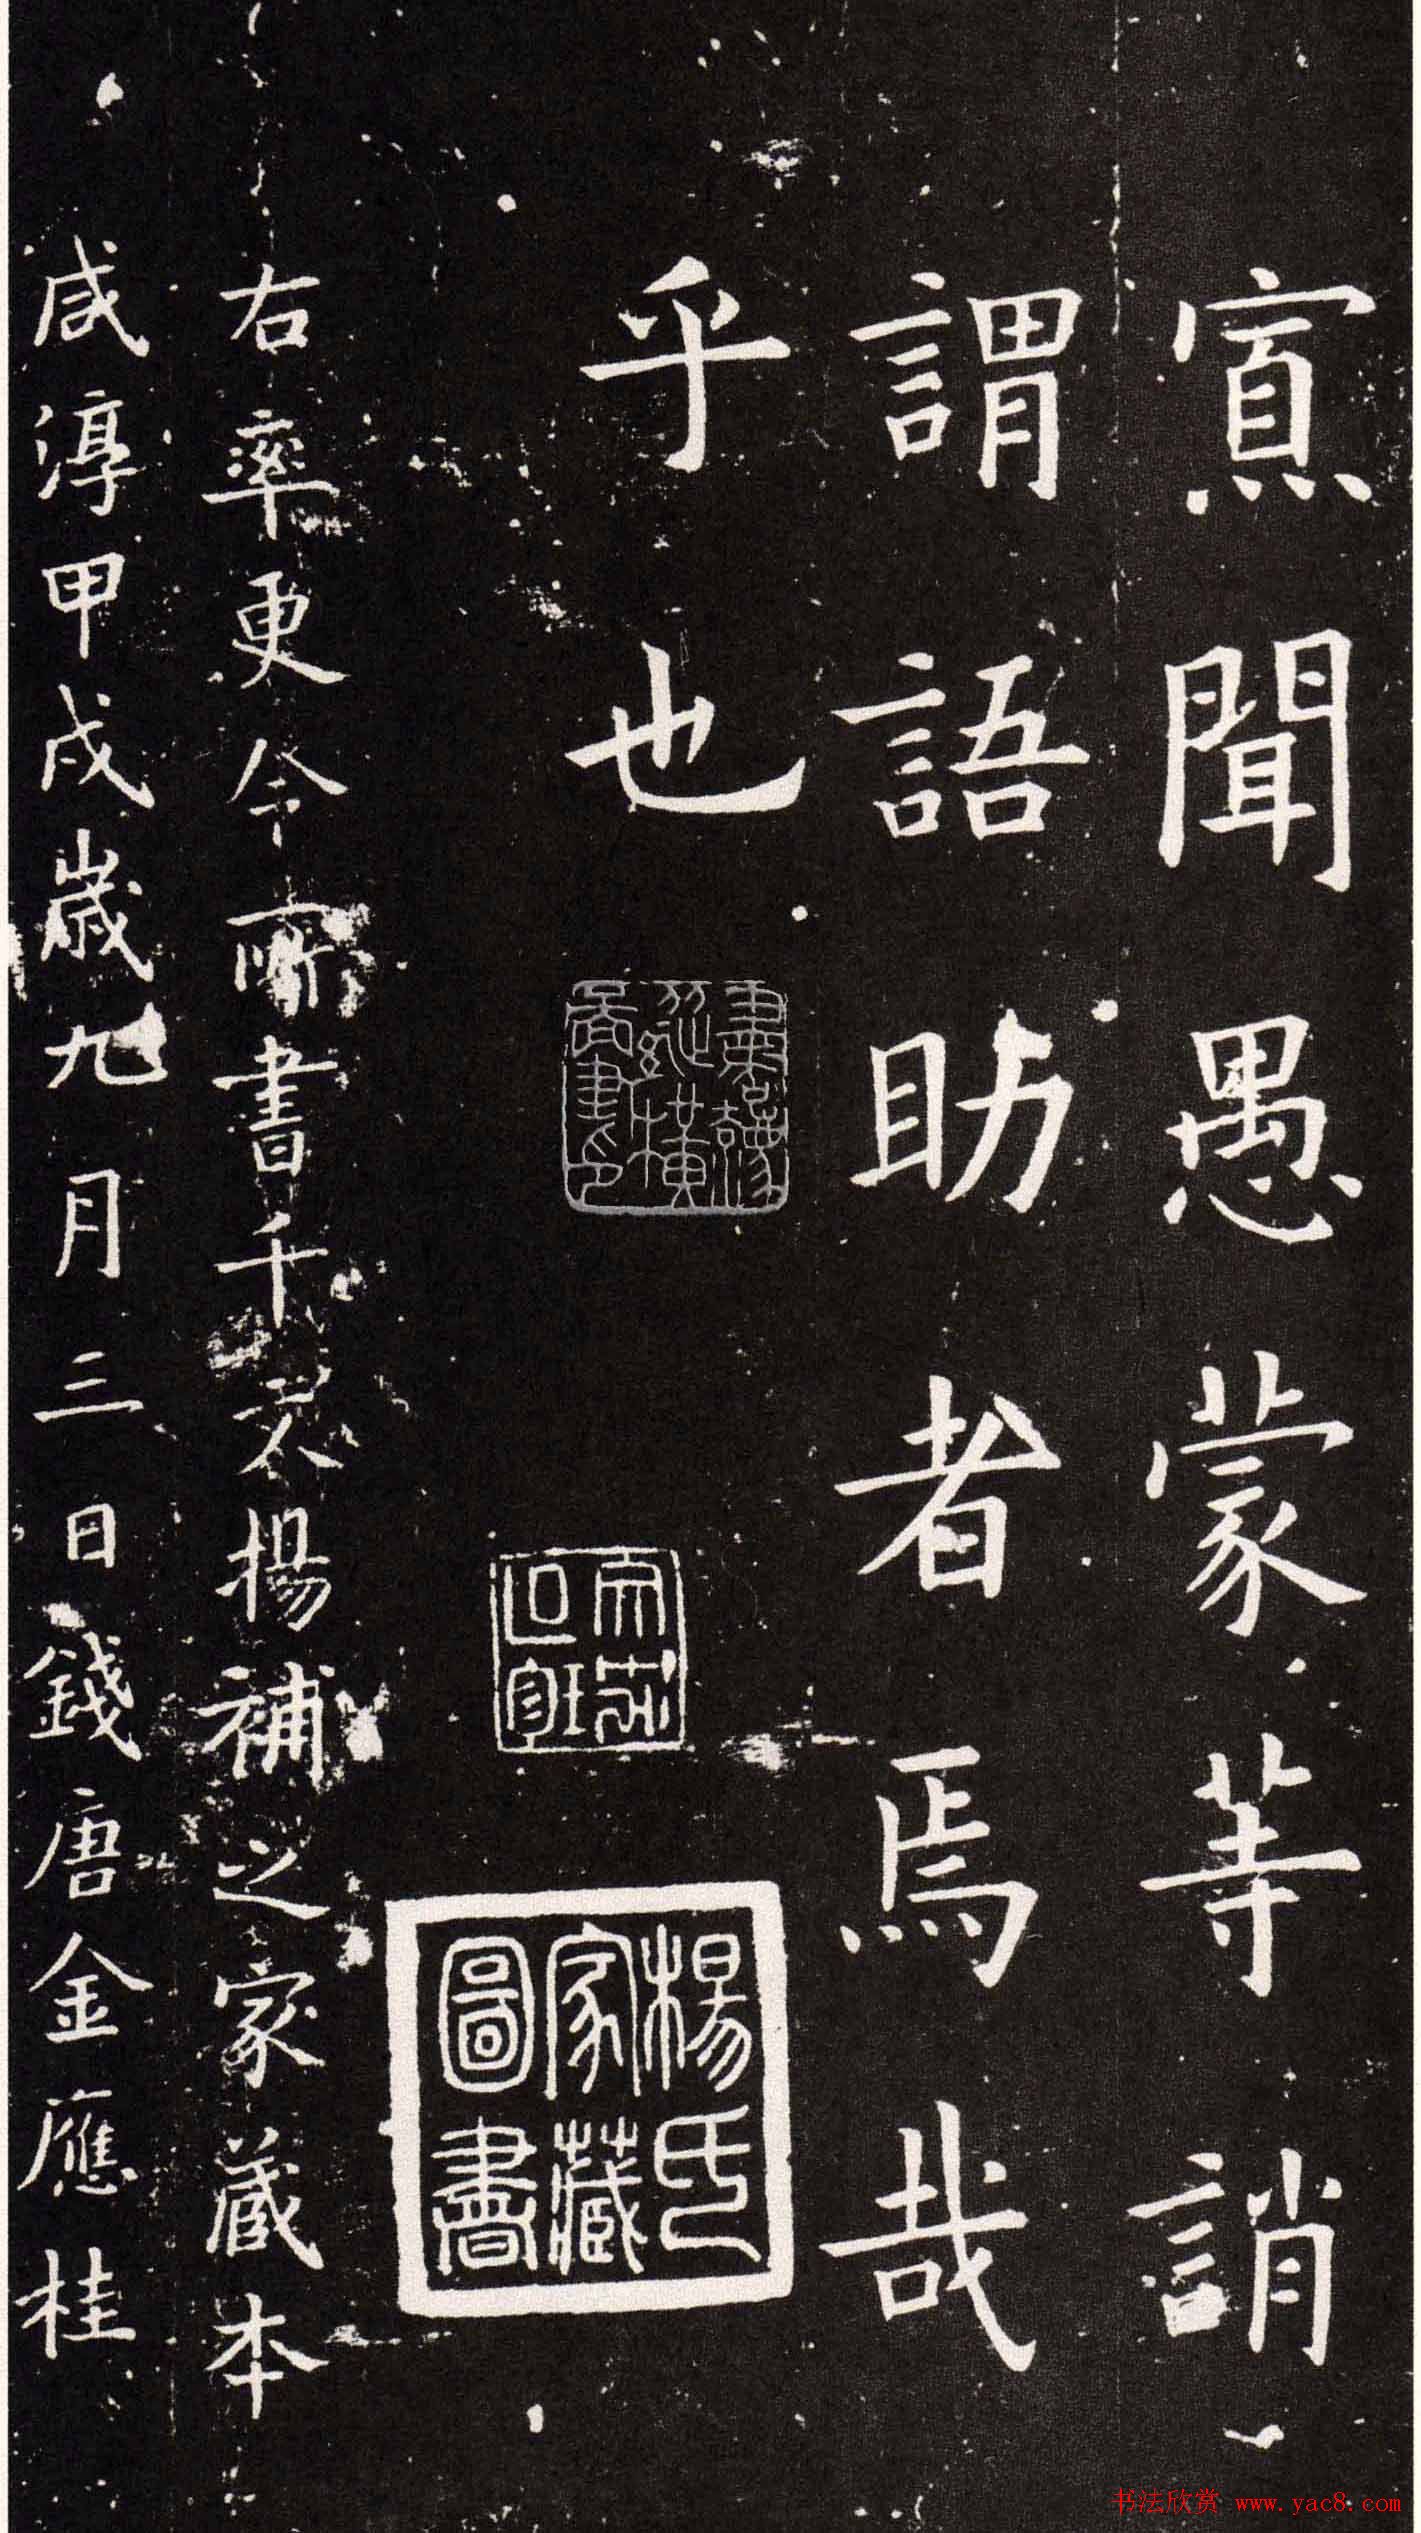 寡聞愚蒙等誚
謂語助者焉哉
乎也
楊氏
家藏
圖書
右率更令所書千文楊補之家藏本
咸淳甲戌歲九月三日錢唐金應桂
书法欣赏 www.yac8.com